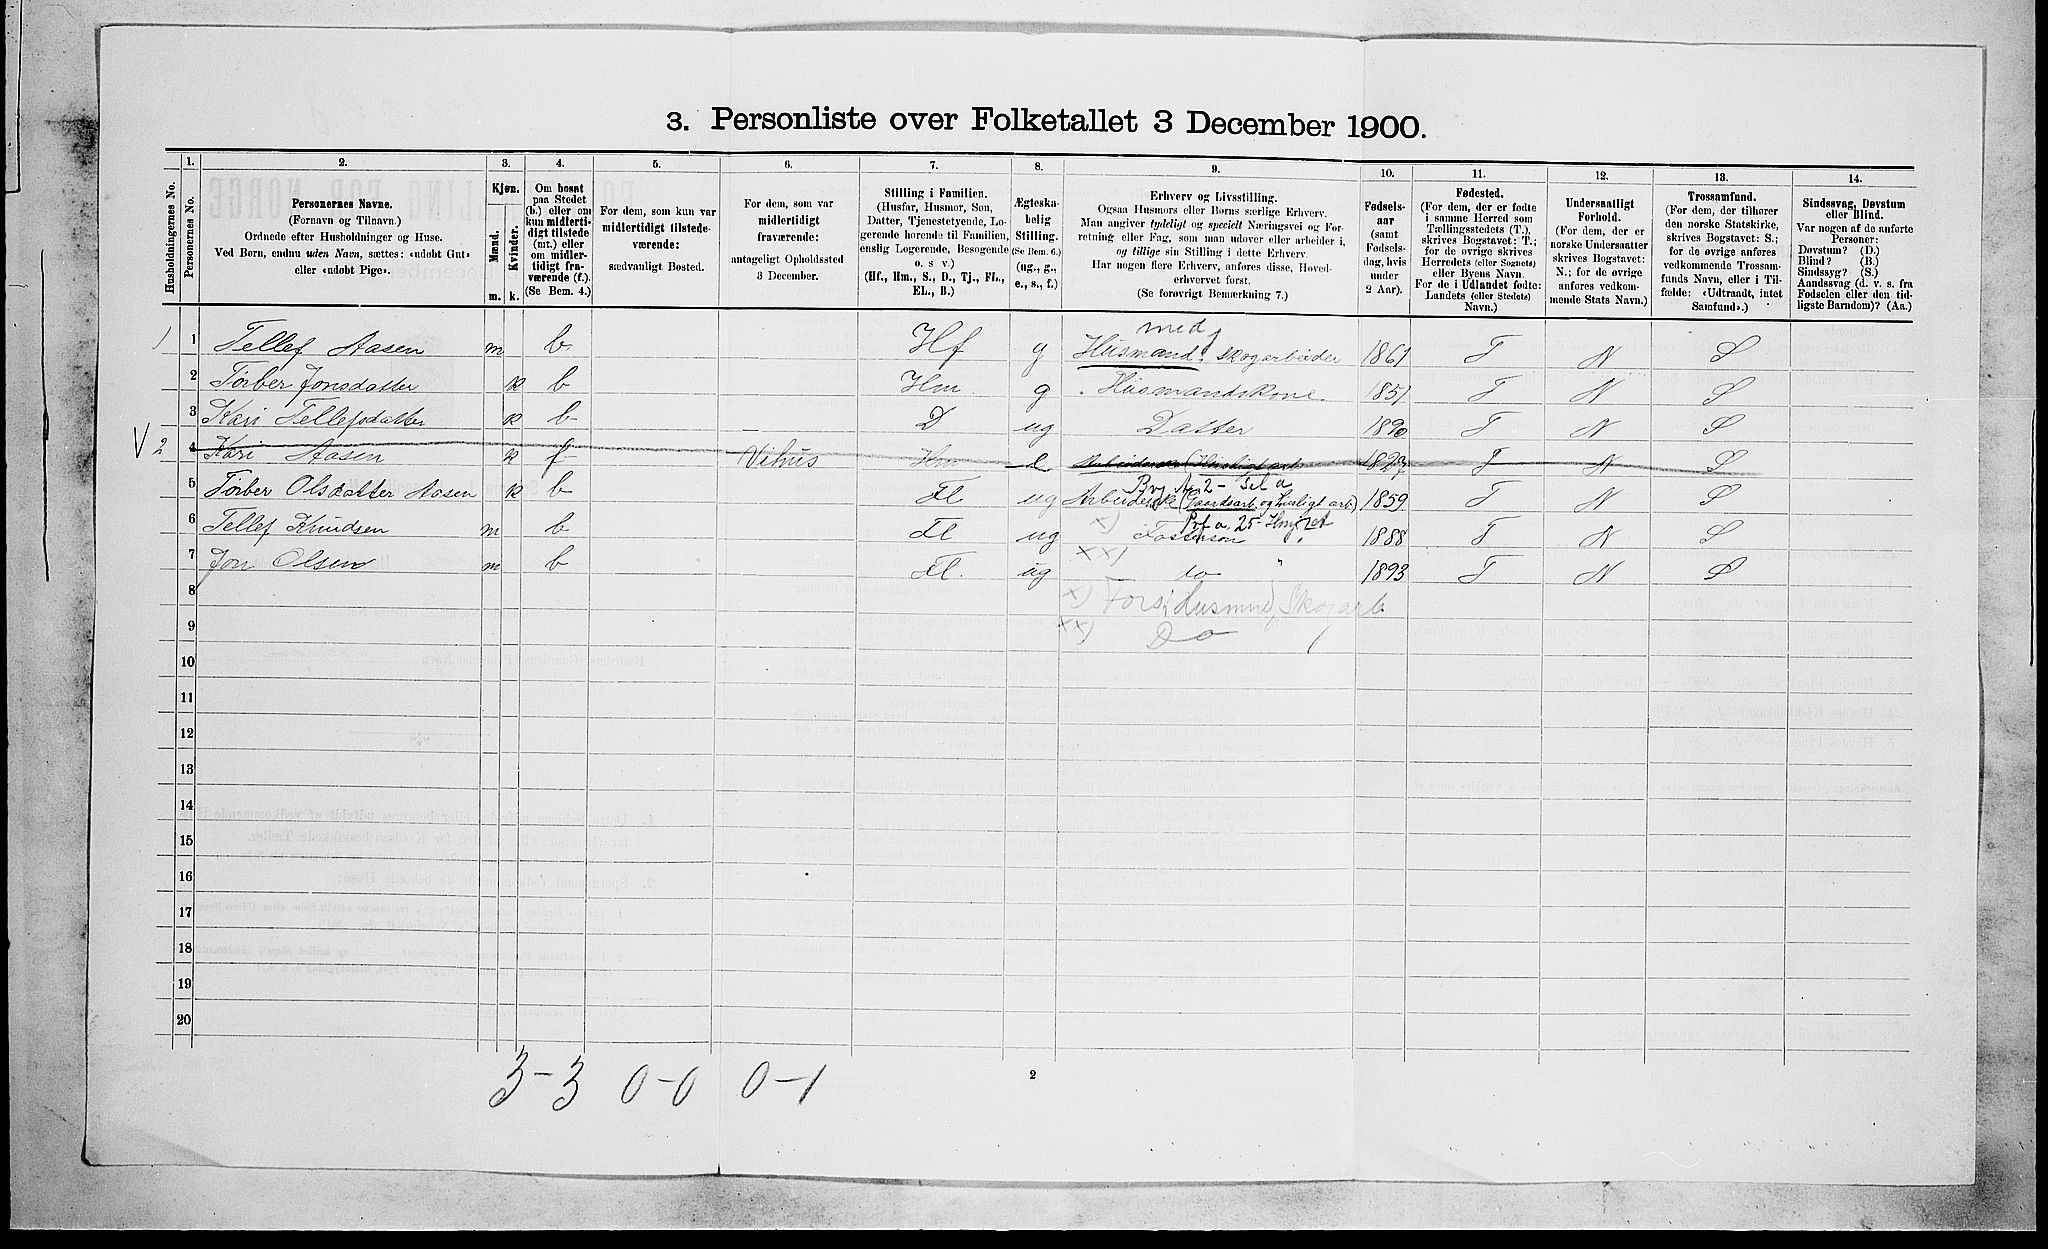 3. Personliste over Folketallet 3 December 1900.
1. 2. 3. 4. 5. 6. 7. 8. 9. 10. 11. 12. 13. 14.
Husholdningernes No.
Personernes No.
Personernes Navne.
(Fornavn og Tilnavn.)
Ordnede efter Husholdninger og Huse.
Ved Børn, endnu uden Navn, sættes: «udøbt Gut»
eller «udøbt Pige».
Kjøn.
Mænd.
Kvinder.
m. k.
Om bosat
paa Stedet
(b.) eller om
kun midlerti-
digt tilstede
(mt.) eller
om midler-
tidigt fra-
værende (f.)
(Se Bem. 4.)
For dem, som kun var
midlertidigt tilstede-
værende:
sædvanligt Bosted.
For dem, som var
midlertidigt
fraværende:
antageligt Opholdssted
3 December.
Stilling i Familien.
(Husfar, Husmor, Søn,
Datter, Tjenestetyende, Lo-
gerende hørende til Familien,
enslig Logerende, Besøgende
o. s. v.)
(Hf., Hm., S., D., Tj., FL.,
EL., B.)
Ægteska-
belig
Stilling.
(Se Bem. 6.)
(ug., g.,
e., s., f.)
Erhverv og Livsstilling.
Ogsaa Husmors eller Børns særlige Erhverv.
Man angiver tydeligt og specielt Næringsvei og For-
retning eller Fag, som man udover eller arbeider i,
og tillige sin Stilling i dette Erhverv.
Har nogen flere Erhverv, anføres disse, Hoved-
erhvervet først.
(Se forøvrigt Bemærkning 7.)
Fødsels-
aar
(samt
Fødsels-
dag, hvis
under
2 Aar).
Fødested.
(For dem, der er fødte
i samme Herred som
Tællingsstedets (T.),
skrives Bogstavet: T.;
for de øvrige skrives
Herredets (eller Sognets)
eller Byens Navn.
For de i Udlandet fødte:
Landets (eller Stedets)
Navn.)
Undersaatligt
Forhold.
(For dem, der er
norske Undersaatter
skrives Bogstavet:
N.; for de øvrige
anføres vedkom-
mende Stats Navn.)
Trossamfund.
(For dem, der tilhører
den norske Statskirke,
skrives Bogstavet: S.;
for de øvrige anføres
vedkommende Trossam-
funds Navn, eller i Til-
fælde: «Udtraadt, intet
Samfund».)
Sindssvag, Døvstum
eller Blind.
Var nogen af de anførte
Personer:
Døvstum? (D.)
Blind? (B.)
Sindssyg? (S.)
Aandssvag (d. v. s. fra
Fødselen eller den tid-
ligste Barndom)? (Aa.)
med
1 1 Tellef Aasen m b Hf g Husmand, skogarbeider 1861 T N S
2 Torber Jonsdatter k b Hm g Husmandskone. 1851 T N S
3 Kari Tellefsdatter k b D ug Datter 1890 T N S
V 2 4 Kari Aasen k f Vihus Hm e 1827 T N S
5 Torber Olsdatter Aasen k b Fl ug Arbeiderske (Gaardsarb. og husligt arb) 1859 T N S
6 Tellef Knudsen m b Fl ug x) Fostersøn 1888 T N S
7 Jon Olsen m b Fl. ug xx) do " 1893 T N S
8 x) Fors: Husmnd, Skogarb.
9 xx) Do
10
11
12
13
14
15
16
17
18
19
20
3-3 0-0 0-1
2